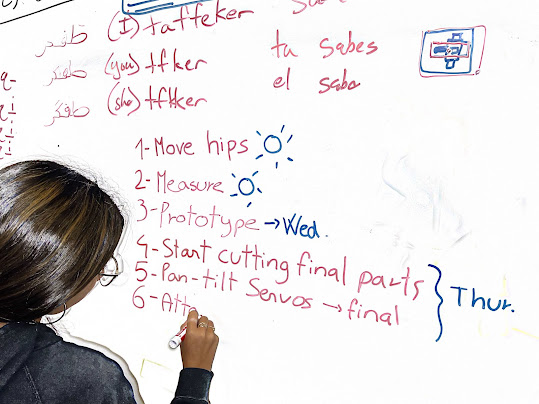 (I) taffeker
(you) tfker tu sabes
(she) tfkker el sabe
1-Move hips
2-Measure
3-Prototype → Wed.
4-Start cutting final parts
5-Pan-tilt Servos → final } Thur.
6-Att